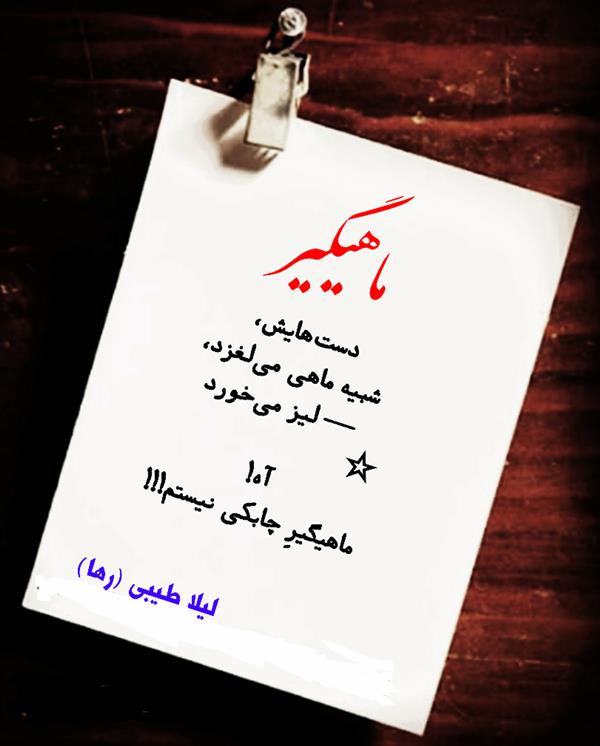 ماهیگیر
دست‌هایش،
شبیه ماهی می‌لغزد،
— لیز می‌خورد
☆
آه!
ماهیگیرِ چابکی نیستم!!!
لیلا طیبی (رها)